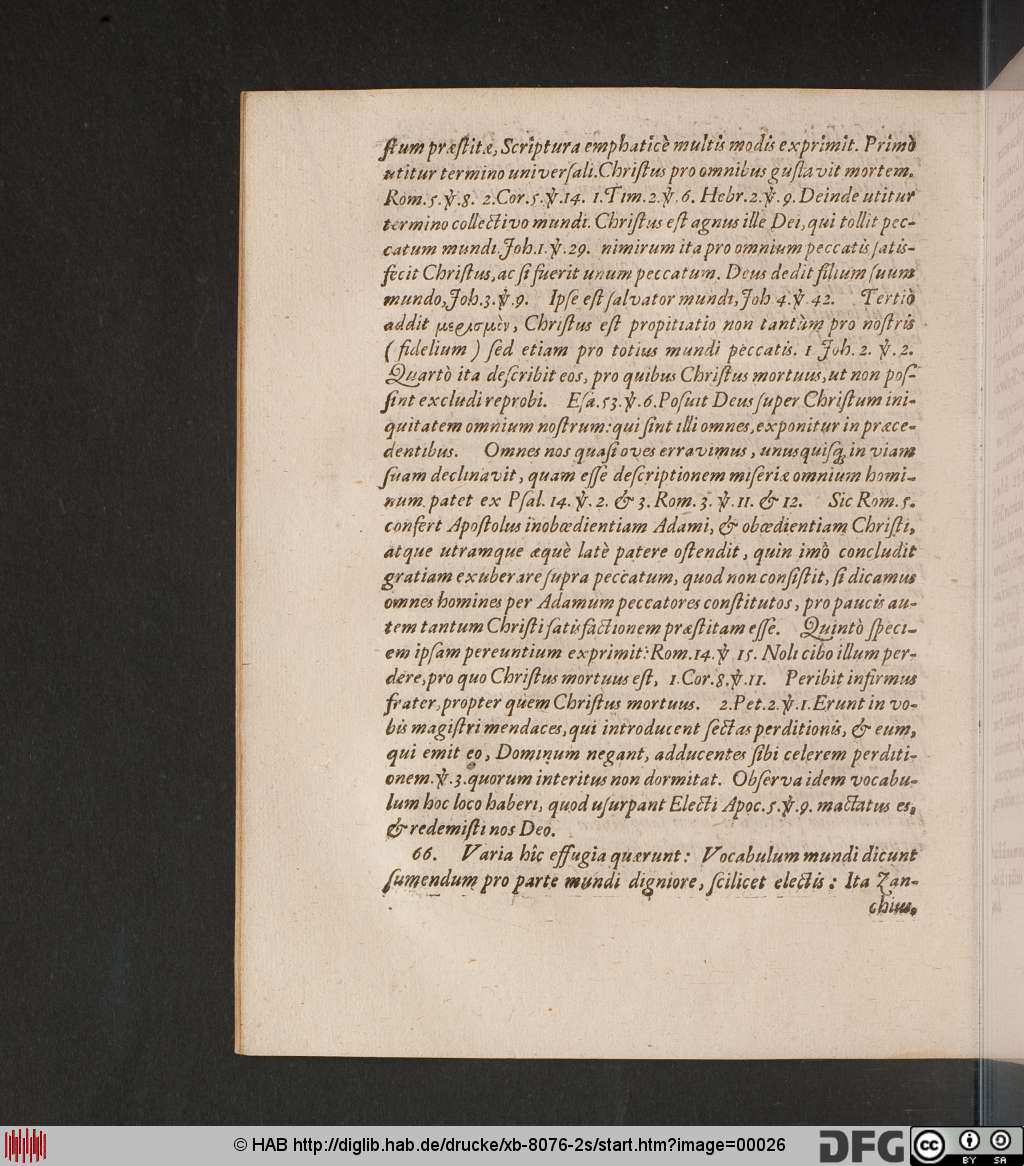 ſtum præſtitæ, Scriptura emphaticè multis modis exprimit. Primò
utitur termino univerſali. Chriſtus pro omnibus guſtavit mortem.
Rom. 5. ꝟ. 8. 2. Cor. 5. ꝟ. 14. 1. Tim. 2. ꝟ. 6. Hebr. 2. ꝟ. 9. Deinde utitur
termino collectivo mundi. Chriſtus eſt agnus ille Dei, qui tollit pec-
catum mundi, Joh. 1. ꝟ. 29. nimirum ita pro omnium peccatis ſatis-
fecit Chriſtus, ac ſi fuerit unum peccatum. Deus dedit filium ſuum
mundo, Joh. 3. ꝟ. 9. Ipſe eſt ſalvator mundi, Joh 4. ꝟ. 42. Tertiò
addit μερισμὲν, Chriſtus eſt propitiatio non tantùm pro noſtris
(fidelium) ſed etiam pro totius mundi peccatis. 1 Joh. 2. ꝟ. 2.
Quartò ita deſcribit eos, pro quibus Chriſtus mortuus, ut non poſ-
ſint excludi reprobi. Eſa. 53. ꝟ. 6. Poſuit Deus ſuper Chriſtum ini-
quitatem omnium noſtrum: qui ſint illi omnes, exponitur in præce-
dentibus. Omnes nos quaſi oves erravimus, unusquiſq; in viam
ſuam declinavit, quam eſſe deſcriptionem miſeriæ omnium homi-
num, patet ex Pſal. 14. ꝟ. 2. & 3. Rom. 3. ꝟ. 11. & 12. Sic Rom. 5.
confert Apoſtolus inobœdientiam Adami, & obœdientiam Chriſti,
atque utramque æquè latè patere oſtendit, quin imò concludit
gratiam exuberare ſupra peccatum, quod non conſiſtit, ſi dicamus
omnes homines per Adamum peccatores conſtitutos, pro paucis au-
tem tantum Chriſti ſatisfactionem præſtitam eſſe. Quintò ſpeci-
em ipſam pereuntium exprimit: Rom. 14. ꝟ 15. Noli cibo illum per-
dere, pro quo Chriſtus mortuus eſt, 1. Cor. 8. ꝟ. 11. Peribit infirmus
frater, propter quem Chriſtus mortuus. 2. Pet. 2. ꝟ. 1. Erunt in vo-
bis magiſtri mendaces, qui introducent ſectas perditionis, & eum,
qui emit eo, Dominum negant, adducentes ſibi celerem perditi-
onem. ꝟ. 3. quorum interitus non dormitat. Obſerva idem vocabu-
lum hoc loco haberi, quod uſurpant Electi Apoc. 5. ꝟ. 9. mactatus es,
& redemiſti nos Deo.
66. Varia hîc effugia quærunt: Vocabulum mundi dicunt
ſumendum pro parte mundi digniore, ſcilicet electis: Ita Zan-
chius,
© HAB http://diglib.hab.de/drucke/xb-8076-2s/start.htm?image=00026
DFG
cc
BY SA